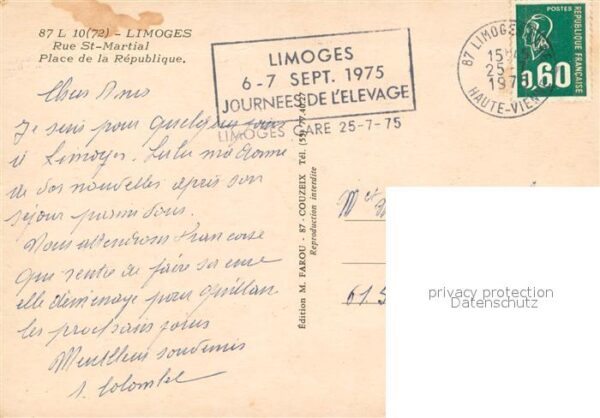 87 L 10(72) - LIMOGES
Rue St-Martial
Place de la République.
LIMOGES
6-7 SEPT. 1975
JOURNEES DE L'ELEVAGE
LIMOGES GARE 25-7-75
87 LIMOGES
15H
25-
197
HAUTE-VIEN
POSTES
0,60
REPUBLIQUE FRANÇAISE
Chers Amis
Je suis pour quelques jours
à Limoges. Lulu m'a donné
de vos nouvelles après son
séjour parmi vous.
Nous attendrons Françoise
que rentre de faire sa cure
elle déménage pour Quillan
les prochains jours
Meilleurs souvenirs
Colombel
Édition M. FAROU - 87 - COUZEIX - Tél. (55)
Reproduction interdite
M et
61.
privacy protection
Datenschutz